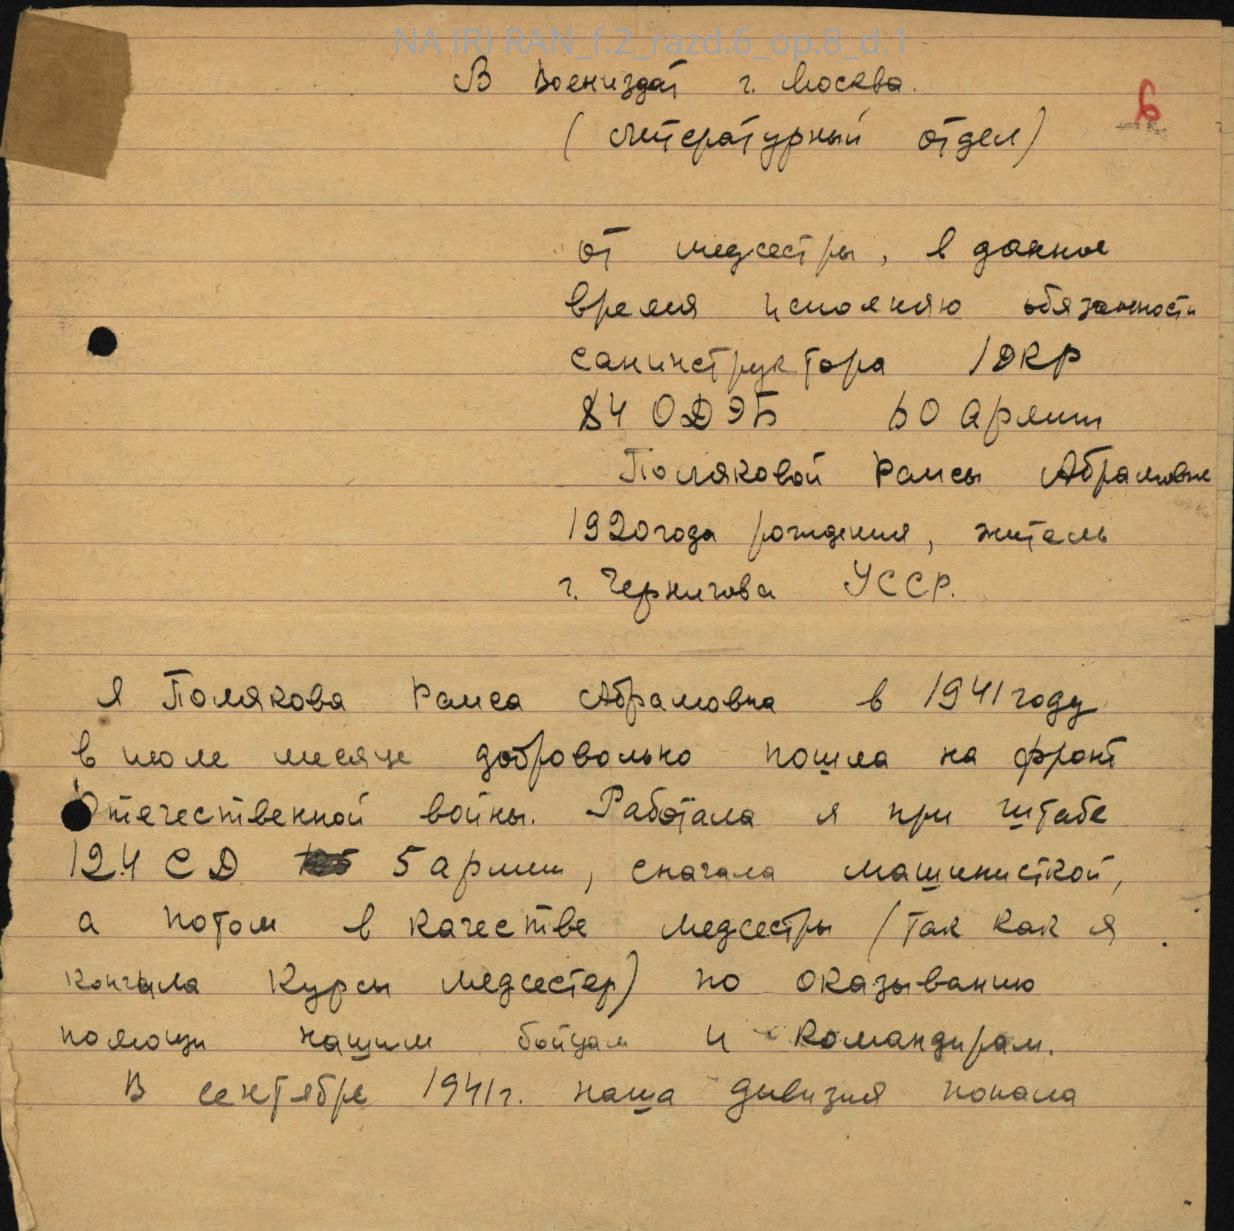 NA IRI RAN_f.2_razd.6_op.8_d.1
В Воениздат г. Москва.
6
(литературный отдел)
от медсестры, в данное
время исполняю обязанности
санинструктора 1ДКР
84 ОДЭБ 60 Армии
Поляковой Раисы Абрамовне
1920 года рождения, житель
г. Чернигова УССР.
Я Полякова Раиса Абрамовна в 1941 году
в июле месяце добровольно пошла на фронт
Отечественной войны. Работала я при штабе
124 СД 5 армии, сначала машинисткой,
а потом в качестве медсестры (так как я
кончила курсы медсестер) по оказыванию
помощи нашим бойцам и командирам.
В сентябре 1941 г. наша дивизия попала